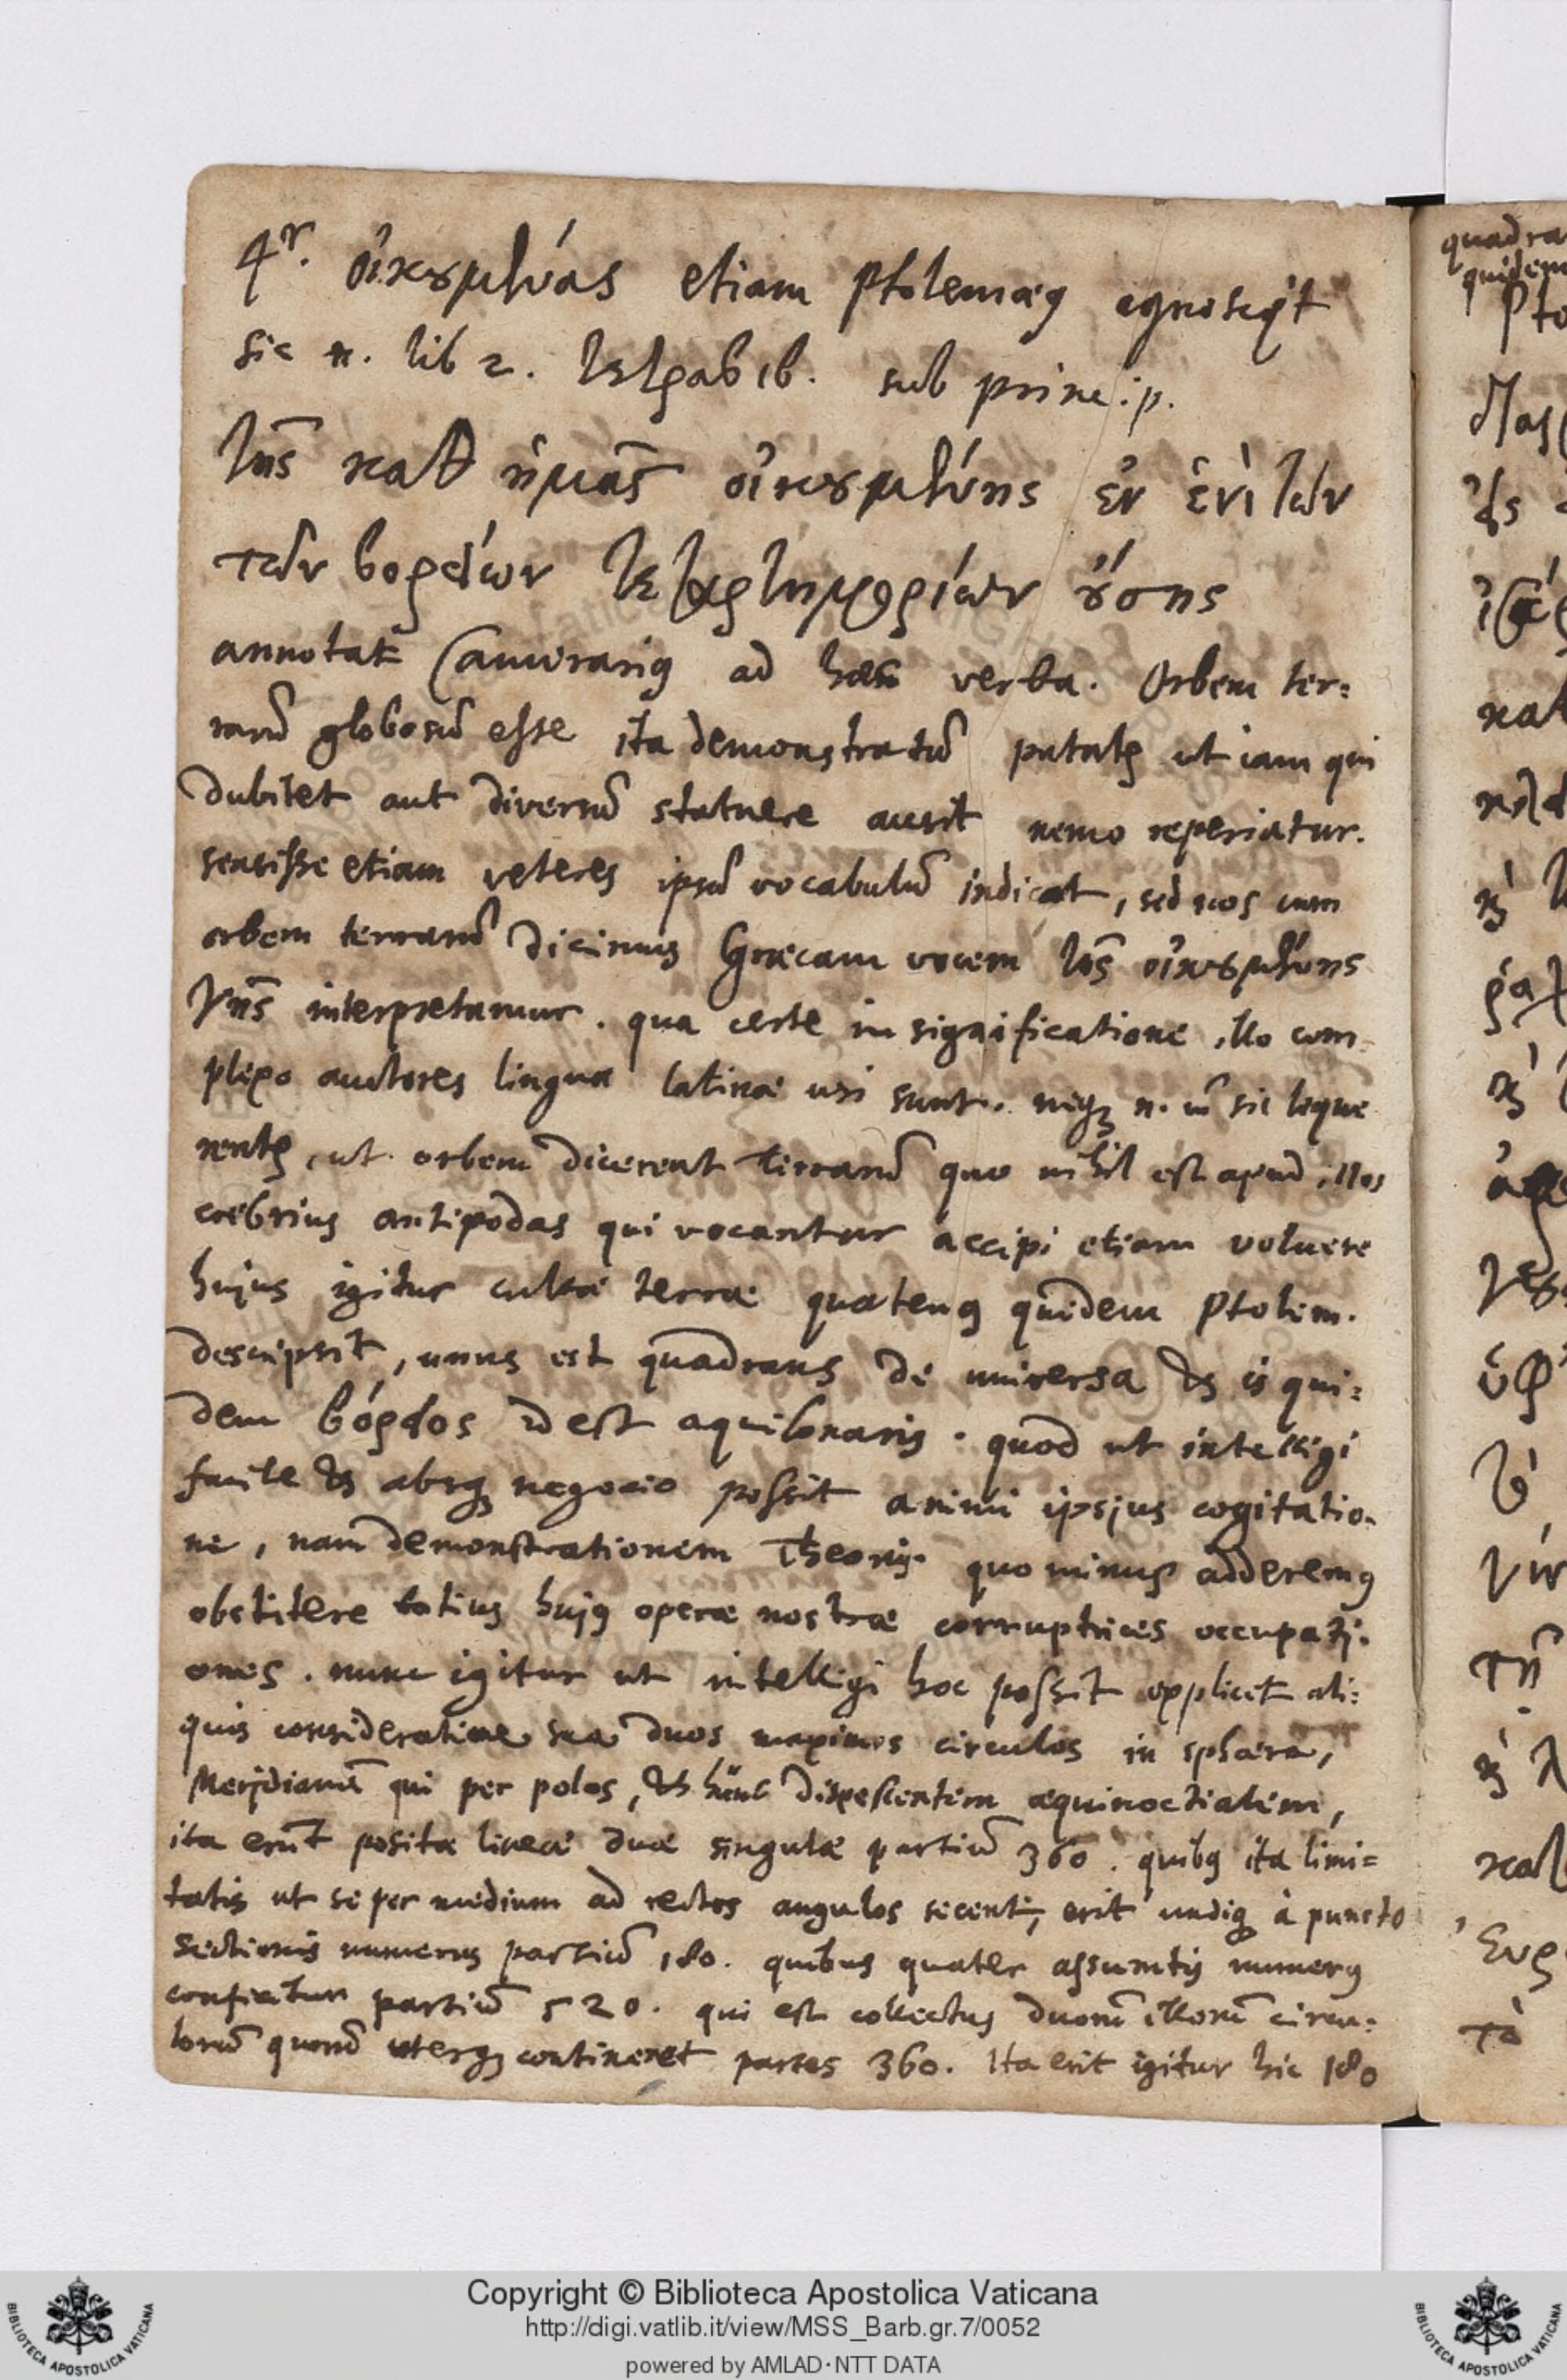 4r. οἰκουμένας etiam Ptolemæus agnoscit
sic n. lib 2. τετραβιβ. sub princip.
τῆς καθ ἡμᾶς οἰκουμένης ἐν ἑνὶ τῶν
τῶν βορείων τεταρτημορίων οὔσης
annotat Camerarius ad hæc verba. Orbem ter=
rarū globosū esse ita demonstratū putatis ut iam qui
dubitet aut diversū statuere ausit nemo reperiatur.
sensisse etiam veteres ipsū vocabulū indicat, sed nos cum
orbem terrarū dicimus Græcam vocem τῆς οἰκουμένης
γῆς interpretamur. qua certe in significatione illo com=
plexo auctores linguæ latinæ usi sunt. neque n. cū sic loque
rentur, ut orbem dicerent terrarū quo nihil est apud illos
crebrius antipodas qui vocantur accipi etiam voluere
hujus igitur cultæ terræ quatenus quidem Ptolem.
descripsit, unus est quadrans de universa & is qui=
dem βόρειος id est aquilonaris. quod ut intelligi
facile & absque negocio possit animi ipsius cogitatio=
ne, nam demonstrationem Theonis quo minus adderemus
obstitere totius hujus operæ nostræ corruptrices occupati=
ones. nunc igitur ut intelligi hoc possit applicet ali=
quis consideratione sua duos maximos circulos in sphæra,
Meridianū qui per polos, & hunc dispescentem æquinoctialem,
ita erūt posita lineæ duæ singulæ partiū 360. quibus ita limi=
tatis ut se per medium ad rectos angulos secent, erit undique à puncto
sectionis numerus partiū 180. quibus quater assumtis numerus
conficitur partiū 520. qui est collectus duorū illorū circu=
lorū quorū uterque contineret partes 360. Ita erit igitur hic 180
quadra
quidem
Copyright © Biblioteca Apostolica Vaticana
http://digi.vatlib.it/view/MSS_Barb.gr.7/0052
powered by AMLAD·NTT DATA
BIBLIOTECA APOSTOLICA VATICANA
BIBLIOTECA APOSTOLICA VATICANA